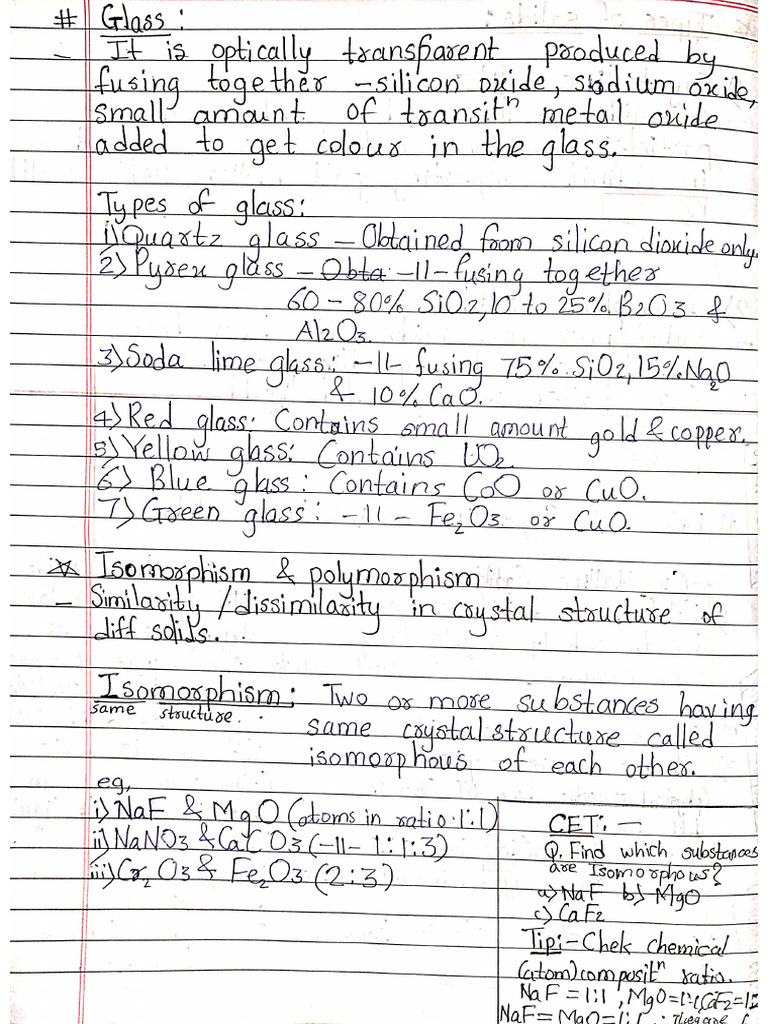 # Glass :
- It is optically transparent produced by
fusing together - silicon oxide, sodium oxide,
small amount of transitⁿ metal oxide
added to get colour in the glass.
Types of glass:
1) Quartz glass - Obtained from silicon dioxide only.
2) Pyrex glass - Obta -11- fusing together
60 - 80% SiO2, 10 to 25% B2O3 &
Al2O3.
3) Soda lime glass: -11- fusing 75% SiO2, 15% Na2O
& 10% CaO.
4) Red glass: Contains small amount gold & copper.
5) Yellow glass: Contains UO2
6) Blue glass : Contains CoO or CuO.
7) Green glass : -11- Fe2O3 or CuO.
☆ Isomorphism & polymorphism
- Similarity / dissimilarity in crystal structure of
diff solids.
Isomorphism: Two or more substances having
same structure. same crystal structure called
isomorphous of each other.
eg,
i) NaF & MgO (atoms in ratio 1:1)
ii) NaNO3 & CaCO3 (-11- 1:1:3)
iii) Cr2O3 & Fe2O3 (2:3)
CET: -
Q. Find which substances
are Isomorphous?
a) NaF b) MgO
c) CaF2
Tip:- Chek chemical
(atom) compositⁿ ratio.
NaF = 1:1, MgO = 1:1, CaF2 = 1:2
NaF = MgO = 1:1 ∴ They are